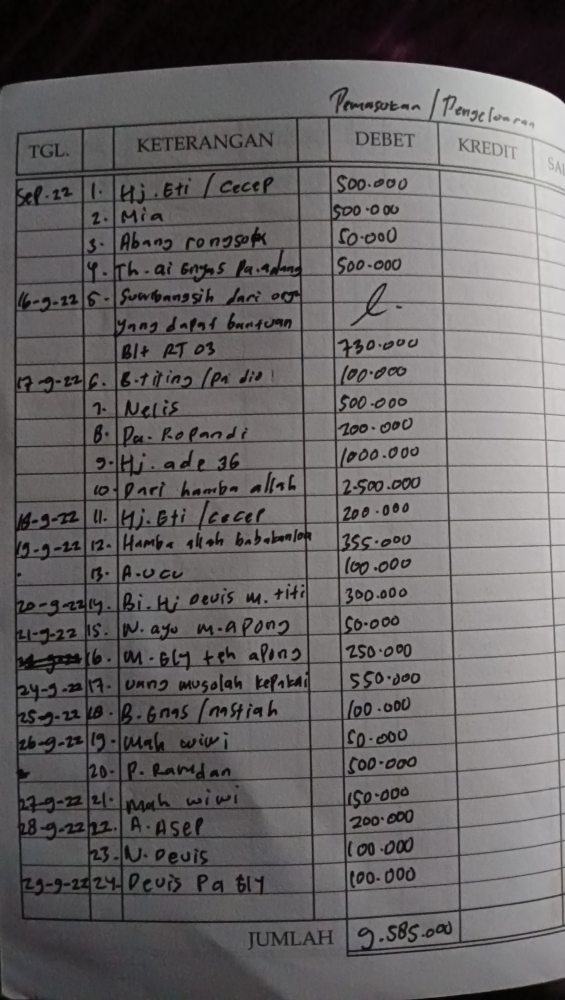 Pemasukan / Pengeluaran
TGL. KETERANGAN DEBET KREDIT
Sep. 22 1. Hj. Eti / Cecep 500.000
2. Mia 500.000
3. Abang rongsok 50.000
4. Th. ai Engas 500.000
16-9-22 5. Sumbangsih dari org
yang dapat bantuan
Blt RT 03 730.000
17-9-22 6. B. titing / pa dio 100.000
7. Nelis 500.000
8. Pa. Ropandi 200.000
9. Hj. ade 36 1000.000
10. Dari hamba allah 2.500.000
18-9-22 11. Hj. Eti / cecep 200.000
19-9-22 12. Hamba allah 355.000
13. A. ucu 100.000
20-9-22 14. Bi. Hj Devis m. titi 300.000
21-9-22 15. N. ayu m. apong 50.000
16. M. Ely teh apong 250.000
24-9-22 17. uang musolah kepakai 550.000
25-9-22 18. B. Enas / nastiah 100.000
26-9-22 19. Mah wiwi 50.000
20. P. Ramdan 500.000
27-9-22 21. Mah wiwi 150.000
28-9-22 22. A. Asep 200.000
23. N. Devis 100.000
29-9-22 24. Devis Pa Ely 100.000
JUMLAH 9.585.000